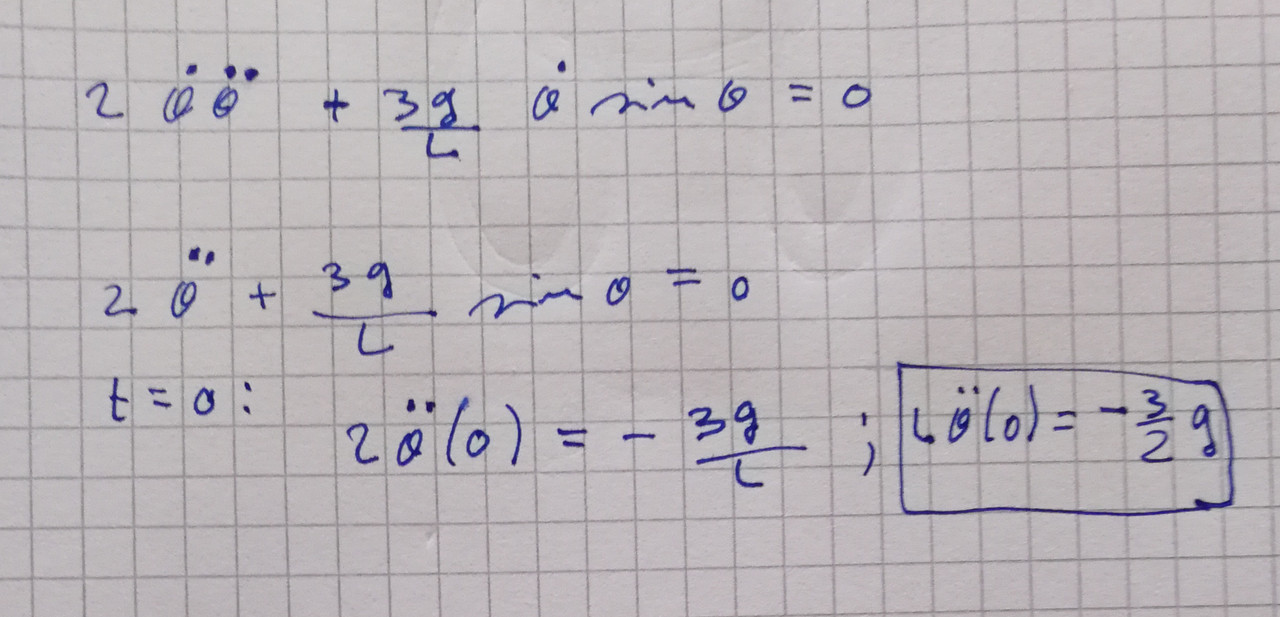 2 θ̇ θ̈ + 3g/L θ̇ sin θ = 0
2 θ̈ + 3g/L sin θ = 0
t = 0 : 2 θ̈(0) = - 3g/L ; L θ̈(0) = - 3/2 g